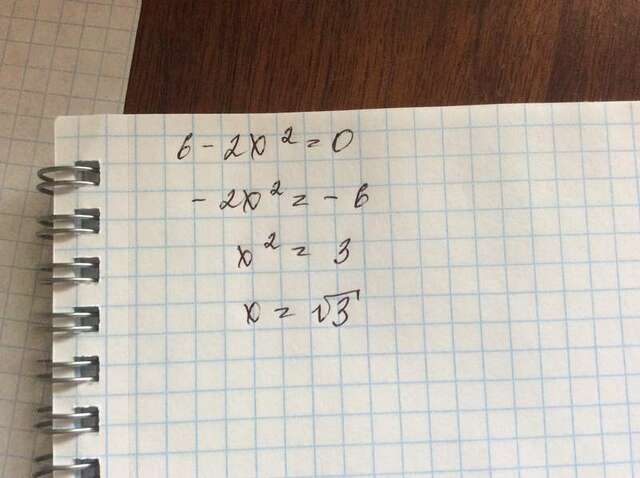 6 - 2x² = 0
- 2x² = - 6
x² = 3
x = √3